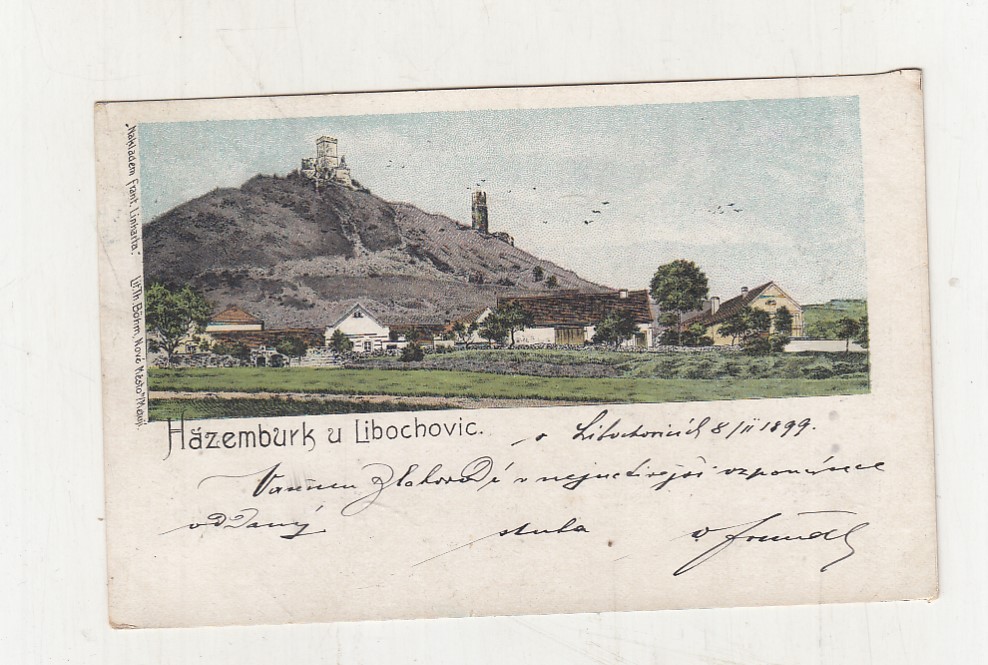 „Nakladem Frant. Linharta.“ Lit. Th. Böhm, Nové Město n/Met.
Házemburk u Libochovic.
v Libochovicích 8/II 1899.
v nejuctivejší vzpomínce
oddaný sluha